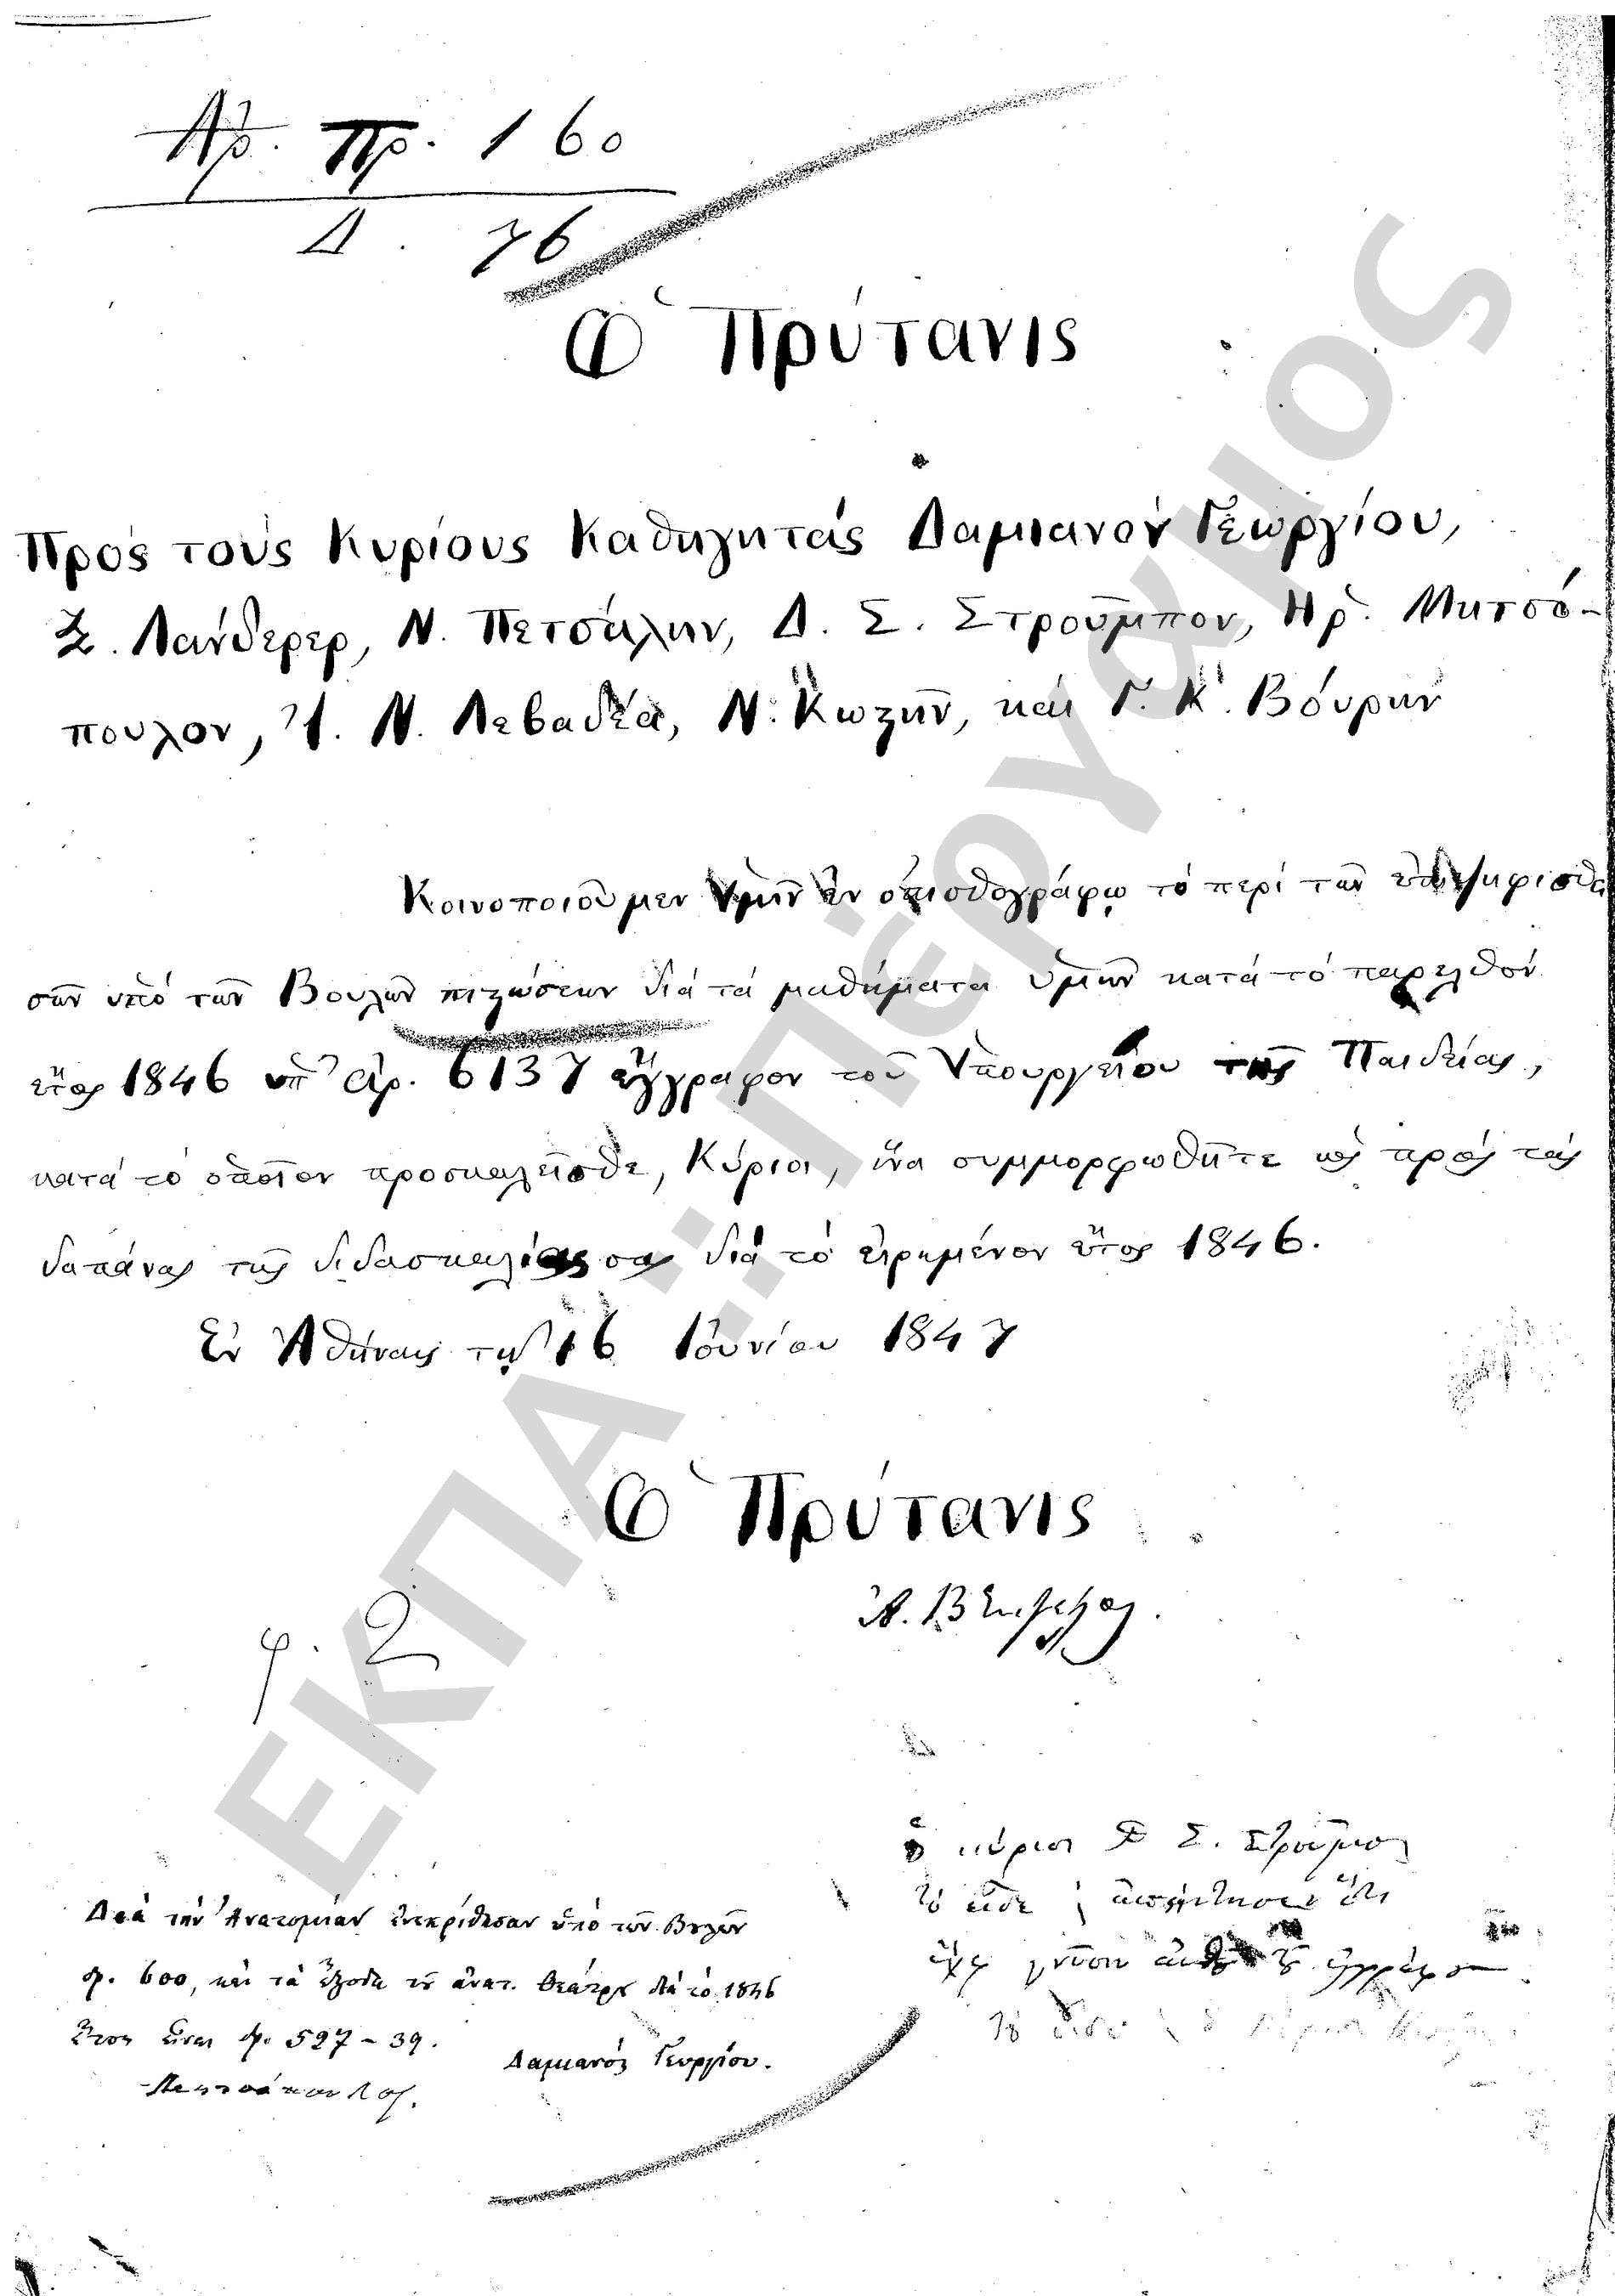 Ἀρ. Πρ. 160
Δ. 76
Ὁ Πρύτανις
Πρὸς τοὺς Κυρίους Καθηγητὰς Δαμιανὸν Γεωργίου,
Ξ. Λάνδερερ, Ν. Πετσάλην, Δ. Σ. Στροῦμπον, Ἡρ. Μητσό-
πουλον, Ἰ. Ν. Λεβαδέα, Ν. Κωζῆν, καὶ Γ. Κ. Βούρην
Κοινοποιοῦμεν ὑμῖν ἐν ὀπισθογράφῳ τὸ περὶ τῶν
σῶν ὑπὸ τῶν Βουλῶν πιζώσεων διὰ τὰ μαθήματα ὑμῶν κατὰ τὸ παρελθὸν
ἔτος 1846 ὑπ' ἀρ. 6137 ἔγγραφον τοῦ Ὑπουργείου τῆς Παιδείας,
κατὰ τὸ ὁποῖον προσκαλεῖσθε, Κύριοι, ἵνα συμμορφωθῆτε ὡς πρὸς τὰς
δαπάνας τῆς διδασκαλίας σας διὰ τὸ εἰρημένον ἔτος 1846.
Ἐν Ἀθήναις τῇ 16 Ἰουνίου 1847
Ὁ Πρύτανις
φ. 2
Διὰ τὴν Ἀνατομίαν ἐνεκρίθησαν ὑπὸ τῶν Βουλῶν
δρ. 600, καὶ τὰ ἔξοδα τοῦ ἀνατ. θεάτρου διὰ τὸ 1846
ἔτος εἶναι δρ. 527 - 39.
Δαμιανὸς Γεωργίου.
Μητσόπουλος.
ὁ κύριος Δ Σ. Στροῦμπος
τὸ εἶδε ἀπήντησεν ὅτι
ἔχει γνῶσιν τοῦ ἐγγράφου
τὸ εἶδε ὁ κύριος
ΕΚΠΑ.: Πέργαμος